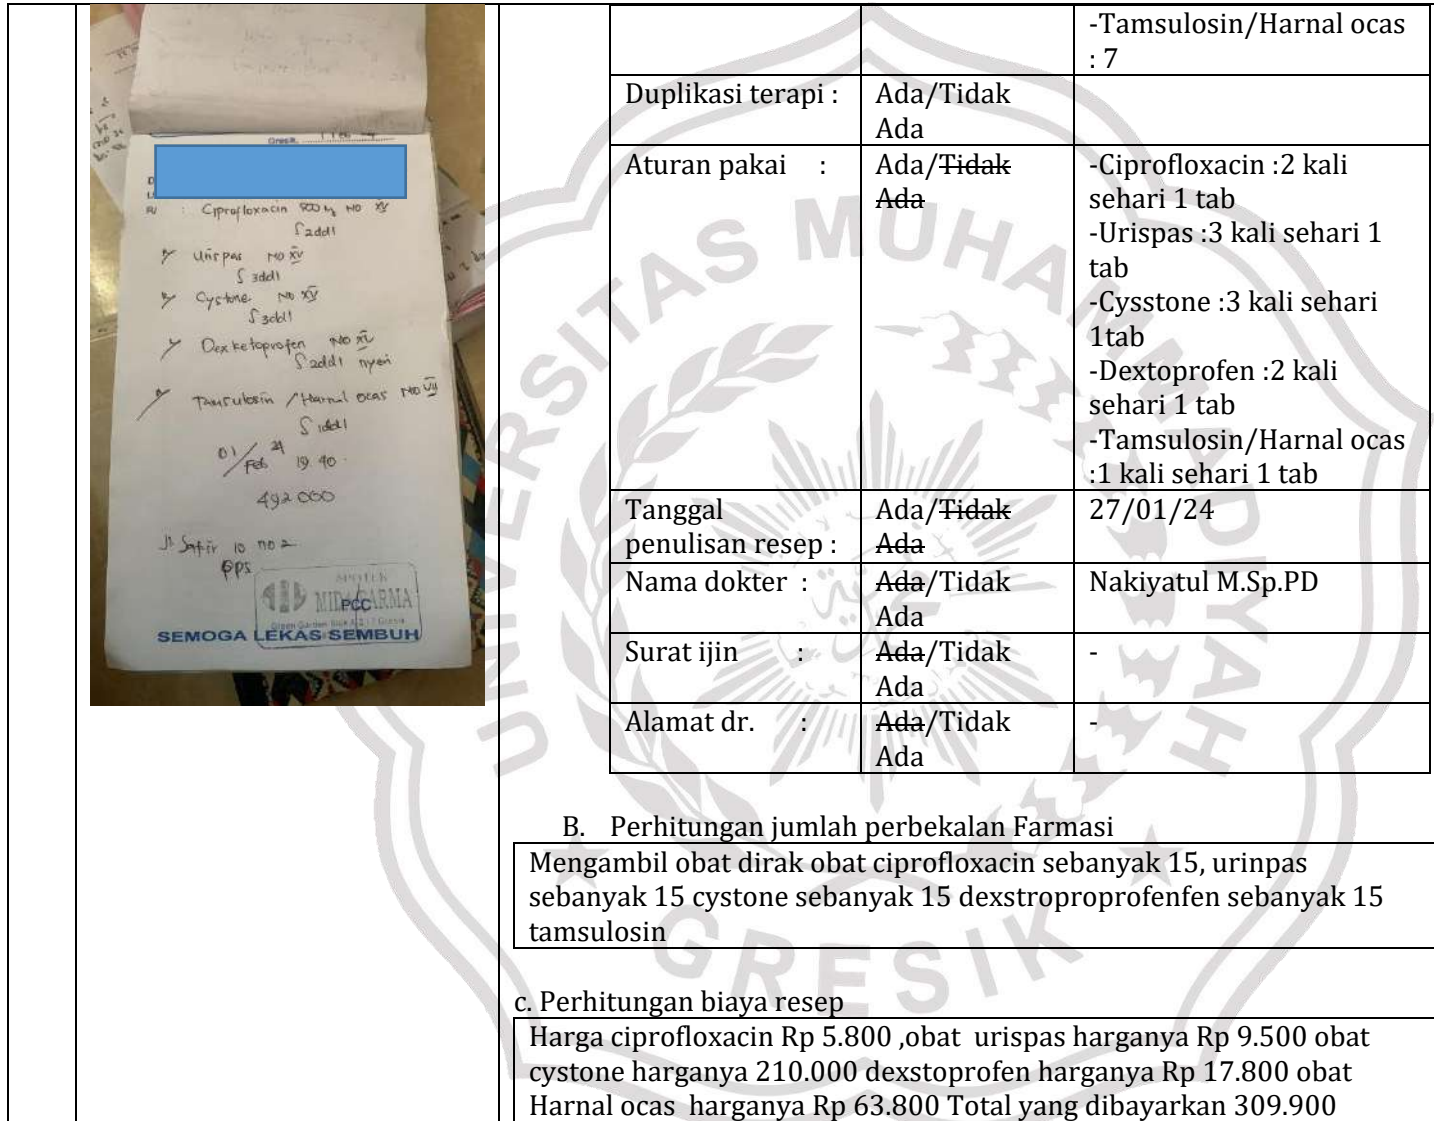 Gresik,
R/ : Ciprofloxacin 500 mg NO XV
S 2dd1
R/ Urispas NO XV
S 3dd1
R/ Cystone NO XV
S 3dd1
R/ Dexketoprofen NO XV
S 2dd1 nyeri
R/ Tamsulosin / Harnal ocas NO VII
S 1dd1
01/Feb 24 19.40
492.000
Jl. Safir 10 no 2
PPS
APOTEK
MIDAFARMA
PCC
SEMOGA LEKAS SEMBUH
-Tamsulosin/Harnal ocas
: 7
Duplikasi terapi : Ada/Tidak
Ada
Aturan pakai : Ada/Tidak
Ada
-Ciprofloxacin :2 kali
sehari 1 tab
-Urispas :3 kali sehari 1
tab
-Cysstone :3 kali sehari
1tab
-Dextoprofen :2 kali
sehari 1 tab
-Tamsulosin/Harnal ocas
:1 kali sehari 1 tab
Tanggal Ada/Tidak 27/01/24
penulisan resep : Ada
Nama dokter : Ada/Tidak Nakiyatul M.Sp.PD
Ada
Surat ijin : Ada/Tidak -
Ada
Alamat dr. : Ada/Tidak -
Ada
B. Perhitungan jumlah perbekalan Farmasi
Mengambil obat dirak obat ciprofloxacin sebanyak 15, urinpas
sebanyak 15 cystone sebanyak 15 dexstroproprofenfen sebanyak 15
tamsulosin
c. Perhitungan biaya resep
Harga ciprofloxacin Rp 5.800 ,obat urispas harganya Rp 9.500 obat
cystone harganya 210.000 dexstoprofen harganya Rp 17.800 obat
Harnal ocas harganya Rp 63.800 Total yang dibayarkan 309.900
UNIVERSITAS MUHAMMADIYAH
GRESIK